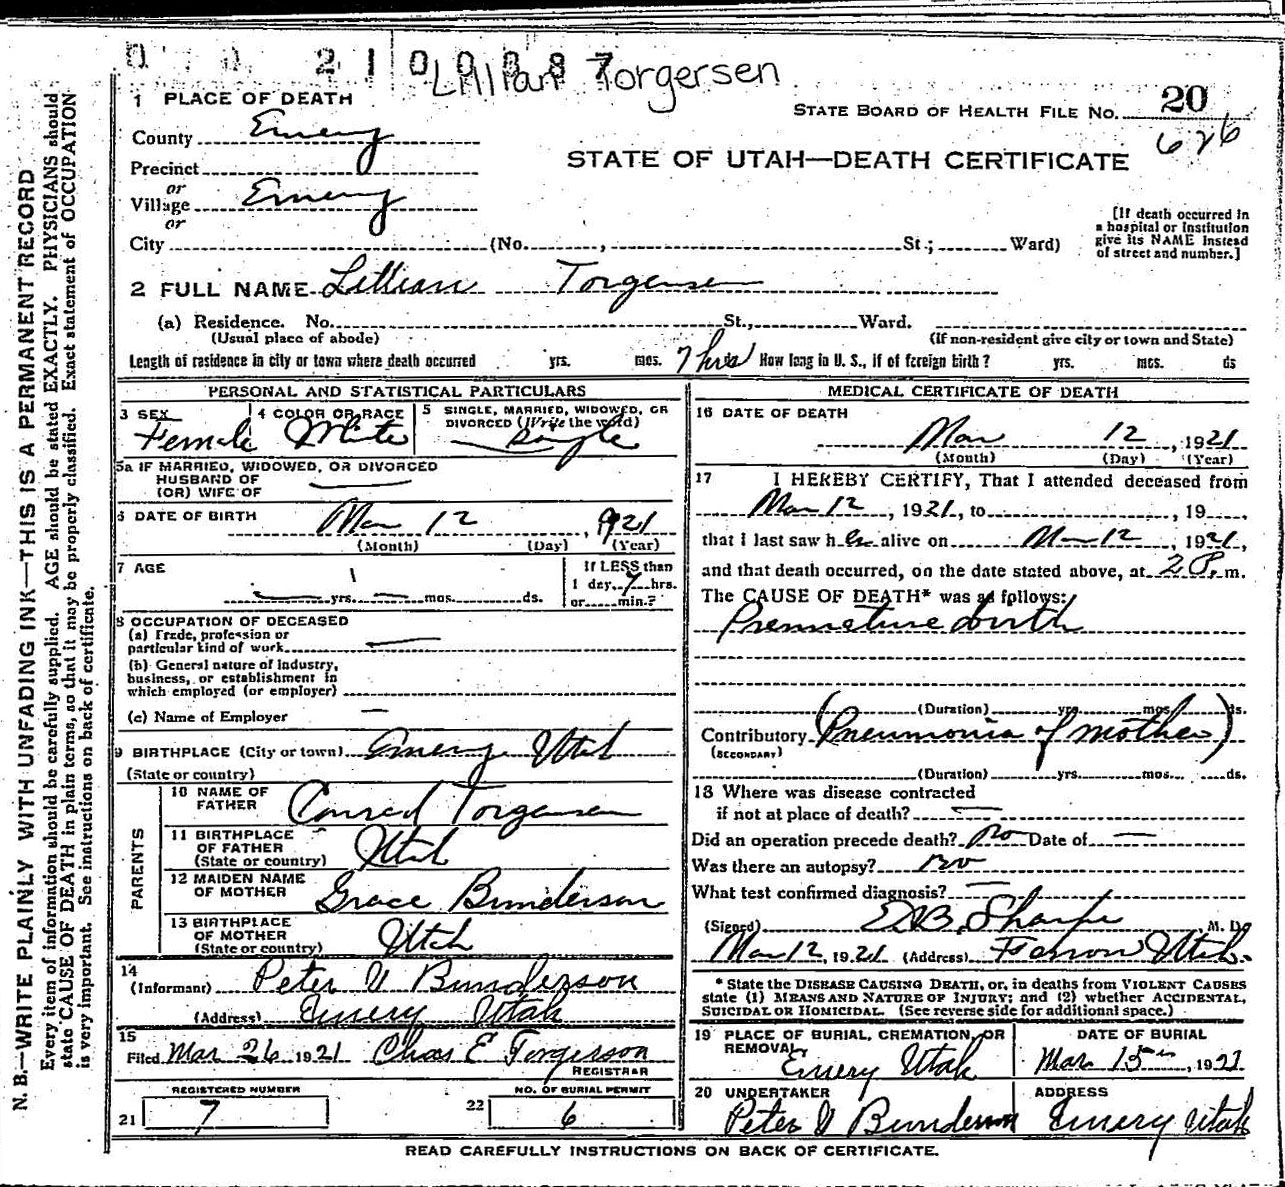 2100087
Lillian Torgersen
1 PLACE OF DEATH
STATE BOARD OF HEALTH FILE No. 20
626
County Emery
STATE OF UTAH—DEATH CERTIFICATE
Precinct
or
Village Emery
or
City (No. , St.; Ward)
[If death occurred in
a hospital or institution
give its NAME instead
of street and number.]
2 FULL NAME Lillian Torgersen
(a) Residence. No. St., Ward.
(Usual place of abode) (If non-resident give city or town and State)
Length of residence in city or town where death occurred yrs. mos. 7 hrs How long in U. S., if of foreign birth? yrs. mos. ds
PERSONAL AND STATISTICAL PARTICULARS
3 SEX 4 COLOR OR RACE 5 SINGLE, MARRIED, WIDOWED, OR
DIVORCED (Write the word)
Female White Single
5a IF MARRIED, WIDOWED, OR DIVORCED
HUSBAND OF
(OR) WIFE OF
6 DATE OF BIRTH Mar 12, 1921
(Month) (Day) (Year)
7 AGE If LESS than
1 day 7 hrs.
yrs. mos. ds. or min.?
8 OCCUPATION OF DECEASED
(a) Trade, profession or
particular kind of work
(b) General nature of industry,
business, or establishment in
which employed (or employer)
(c) Name of Employer
9 BIRTHPLACE (City or town) Emery Utah
(State or country)
PARENTS
10 NAME OF
FATHER Conrad Torgersen
11 BIRTHPLACE
OF FATHER
(State or country) Utah
12 MAIDEN NAME
OF MOTHER Grace Bunderson
13 BIRTHPLACE
OF MOTHER
(State or country) Utah
14
(Informant) Peter V Bunderson
(Address) Emery Utah
15
Filed Mar 26 1921 Chas E Torgerson
REGISTRAR
REGISTERED NUMBER NO. OF BURIAL PERMIT
21 7 22 6
MEDICAL CERTIFICATE OF DEATH
16 DATE OF DEATH
Mar 12, 1921
(Month) (Day) (Year)
17 I HEREBY CERTIFY, That I attended deceased from
Mar 12, 1921, to , 19 ,
that I last saw her alive on Mar 12, 1921,
and that death occurred, on the date stated above, at 2 P. m.
The CAUSE OF DEATH* was as follows:
Premature birth
(Duration) yrs. mos. ds.
Contributory (Pneumonia of mother)
(SECONDARY)
(Duration) yrs. mos. ds.
18 Where was disease contracted
if not at place of death?
Did an operation precede death? No Date of
Was there an autopsy? No
What test confirmed diagnosis?
(Signed) Sharpe M. D.
Mar 12, 1921 (Address) Ferron Utah.
* State the DISEASE CAUSING DEATH, or, in deaths from VIOLENT CAUSES
state (1) MEANS AND NATURE OF INJURY; and (2) whether ACCIDENTAL,
SUICIDAL OR HOMICIDAL. (See reverse side for additional space.)
19 PLACE OF BURIAL, CREMATION, OR
REMOVAL DATE OF BURIAL
Emery Utah Mar 15th, 1921
20 UNDERTAKER ADDRESS
Peter V Bunderson Emery Utah
READ CAREFULLY INSTRUCTIONS ON BACK OF CERTIFICATE.
N. B.—WRITE PLAINLY WITH UNFADING INK—THIS IS A PERMANENT RECORD
Every item of information should be carefully supplied. AGE should be stated EXACTLY. PHYSICIANS should
state CAUSE OF DEATH in plain terms, so that it may be properly classified. Exact statement of OCCUPATION
is very important. See instructions on back of certificate.